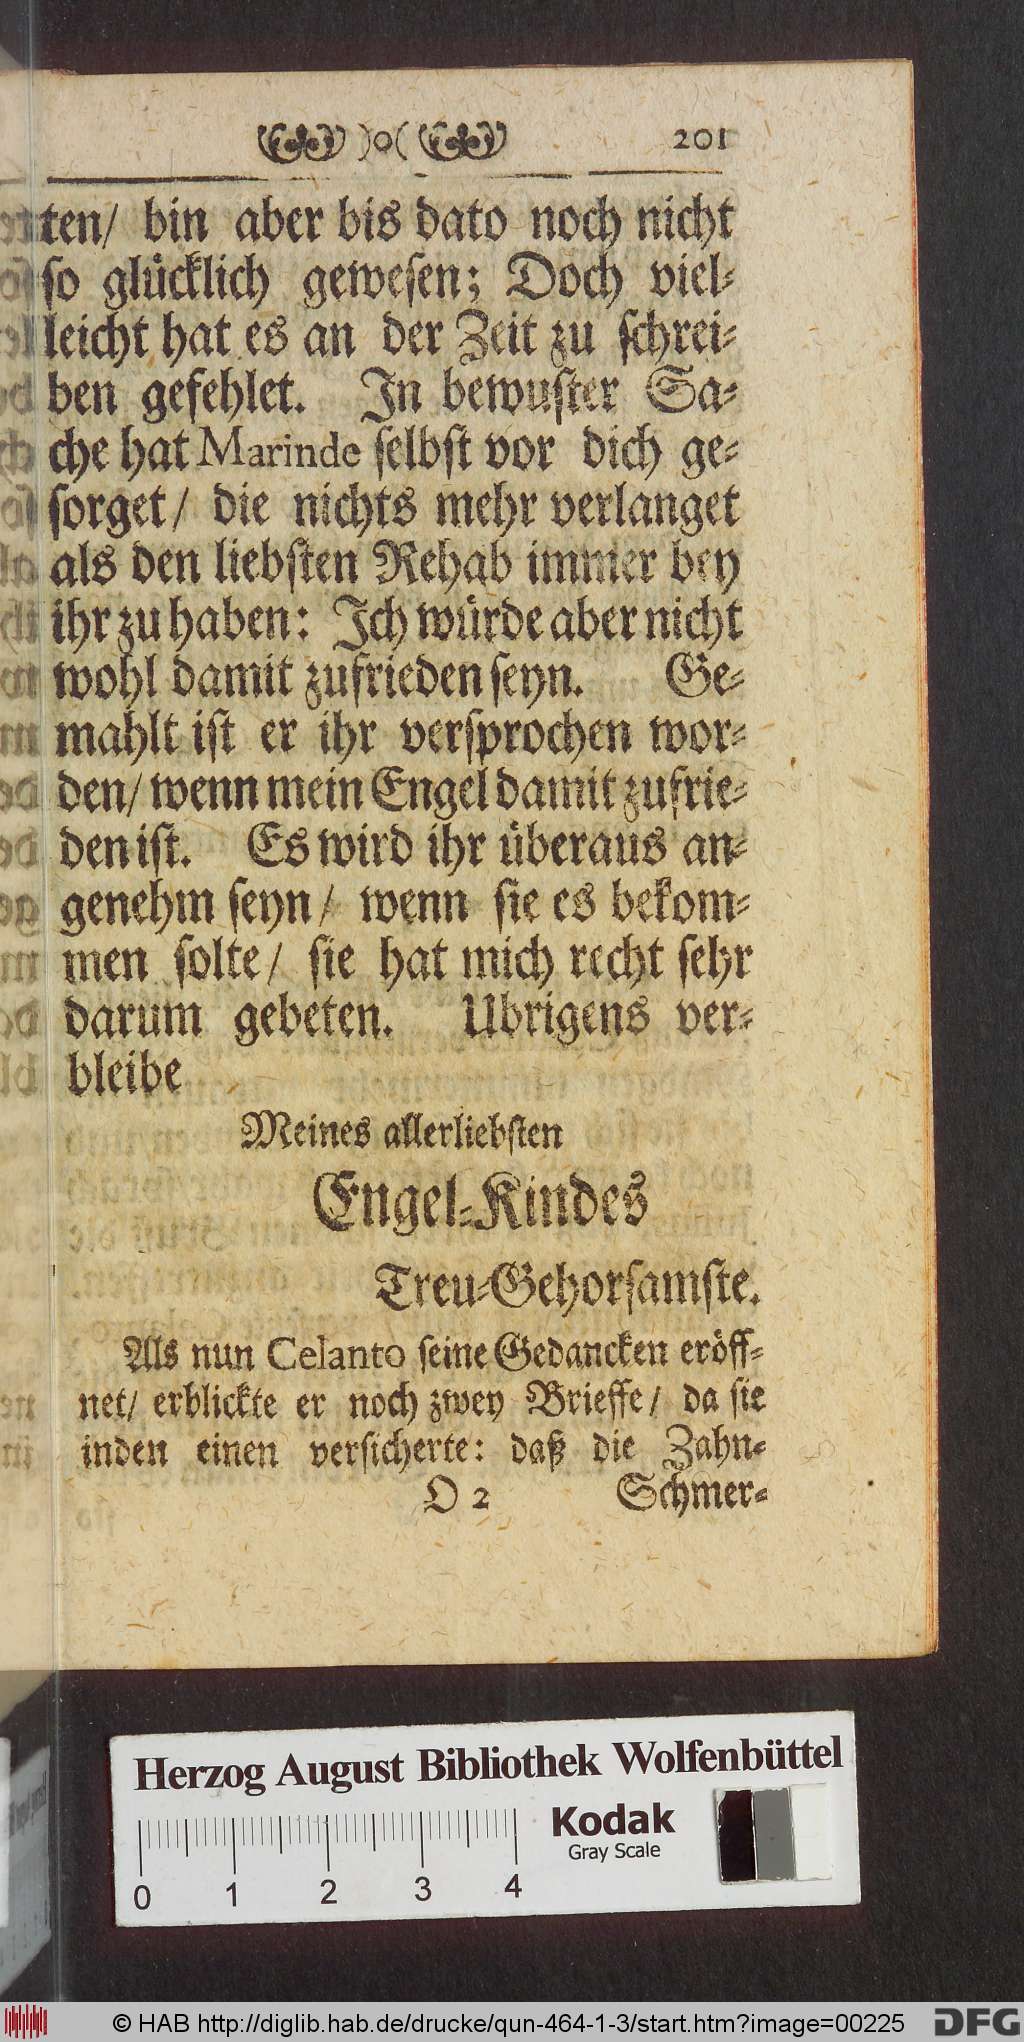 )o( 201
ten/ bin aber bis dato noch nicht
so glücklich gewesen; Doch viel-
leicht hat es an der Zeit zu schrei-
ben gefehlet. In bewuster Sa-
che hat Marinde selbst vor dich ge-
sorget/ die nichts mehr verlanget
als den liebsten Rehab immer bey
ihr zu haben: Ich würde aber nicht
wohl damit zufrieden seyn. Ge-
mahlt ist er ihr versprochen wor-
den/ wenn mein Engel damit zufrie-
den ist. Es wird ihr überaus an-
genehm seyn/ wenn sie es bekom-
men solte/ sie hat mich recht sehr
darum gebeten. Ubrigens ver-
bleibe
Meines allerliebsten
Engel-Kindes
Treu-Gehorsamste.
Als nun Celanto seine Gedancken eröff-
net/ erblickte er noch zwey Brieffe/ da sie
inden einen versicherte: daß die Zahn-
O 2 Schmer-
Herzog August Bibliothek Wolfenbüttel
Kodak
Gray Scale
0 1 2 3 4
© HAB http://diglib.hab.de/drucke/qun-464-1-3/start.htm?image=00225
DFG